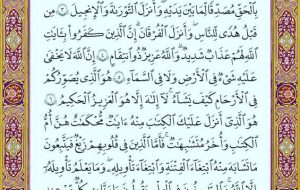 بِٱلْحَقِّ مُصَدِّقًا لِّمَا بَيْنَ يَدَيْهِ وَأَنزَلَ ٱلتَّوْرَىٰةَ وَٱلْإِنجِيلَ ٣ مِن
قَبْلُ هُدًى لِّلنَّاسِ وَأَنزَلَ ٱلْفُرْقَانَ إِنَّ ٱلَّذِينَ كَفَرُوا۟ بِـَٔايَـٰتِ
ٱللَّهِ لَهُمْ عَذَابٌ شَدِيدٌ وَٱللَّهُ عَزِيزٌ ذُو ٱنتِقَامٍ ٤ إِنَّ ٱللَّهَ لَا يَخْفَىٰ
عَلَيْهِ شَىْءٌ فِى ٱلْأَرْضِ وَلَا فِى ٱلسَّمَآءِ ٥ هُوَ ٱلَّذِى يُصَوِّرُكُمْ
فِى ٱلْأَرْحَامِ كَيْفَ يَشَآءُ لَآ إِلَـٰهَ إِلَّا هُوَ ٱلْعَزِيزُ ٱلْحَكِيمُ ٦
هُوَ ٱلَّذِىٓ أَنزَلَ عَلَيْكَ ٱلْكِتَـٰبَ مِنْهُ ءَايَـٰتٌ مُّحْكَمَـٰتٌ هُنَّ أُمُّ
ٱلْكِتَـٰبِ وَأُخَرُ مُتَشَـٰبِهَـٰتٌ فَأَمَّا ٱلَّذِينَ فِى قُلُوبِهِمْ زَيْغٌ فَيَتَّبِعُونَ
مَا تَشَـٰبَهَ مِنْهُ ٱبْتِغَآءَ ٱلْفِتْنَةِ وَٱبْتِغَآءَ تَأْوِيلِهِۦ وَمَا يَعْلَمُ تَأْوِيلَهُۥٓ